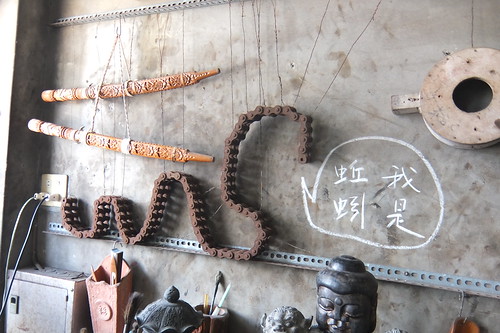 我是
蚯蚓